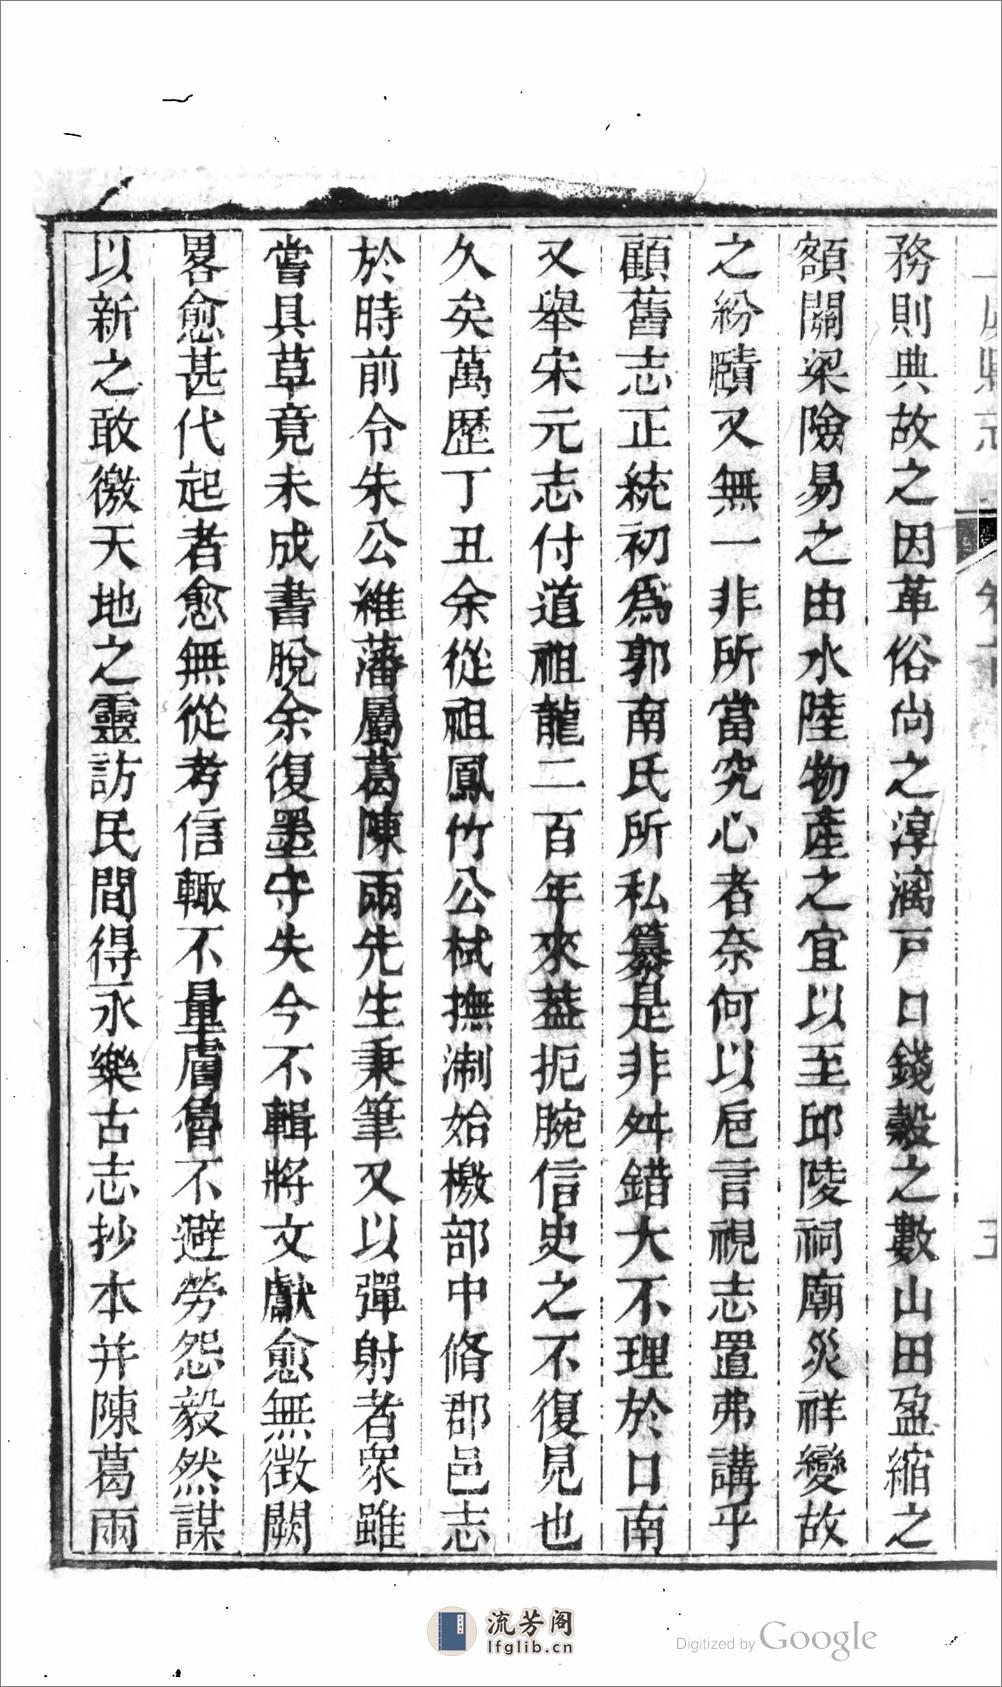 務則典故之因革俗尚之淳漓戸口錢穀之數山田盈縮之
額關梁險易之由水陸物產之宜以至邱陵祠廟災祥變故
之紛賾又無一非所當究心者奈何以卮言視志置弗講乎
顧舊志正統初爲郭南氏所私纂是非舛錯大不理於口南
又舉宋元志付道祖龍二百年來葢扼腕信史之不復見也
久矣萬歷丁丑余從祖鳳竹公栻撫淛始檄部中脩郡邑志
於時前令朱公維藩屬葛陳兩先生秉筆又以彈射者衆雖
嘗具草竟未成書脫余復墨守失今不輯將文獻愈無徵闕
畧愈甚代起者愈無從考信輙不量膚魯不避勞怨毅然謀
以新之敢徼天地之靈訪民間得永樂古志抄本并陳葛兩
流芳阁
lfglib.cn
Digitized by Google